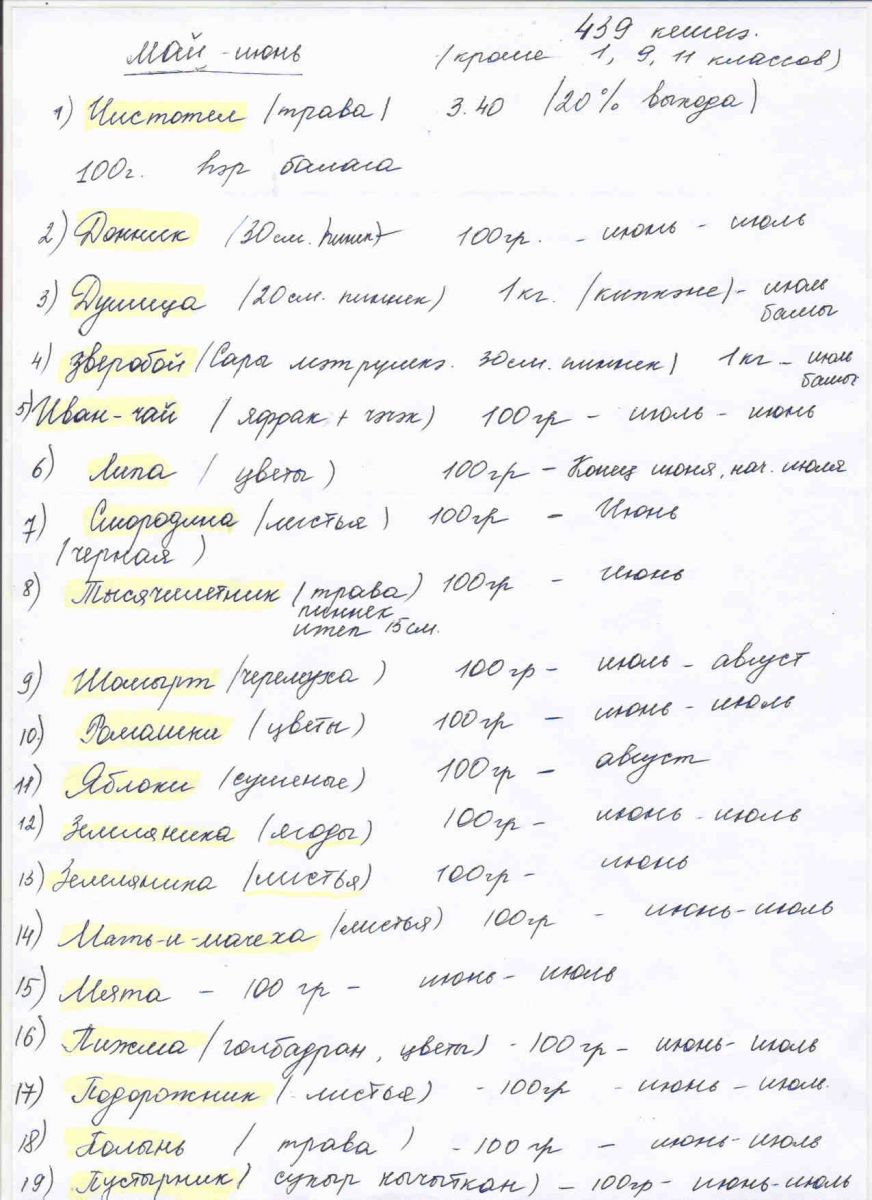 439 кешегә.
Май - июнь (кроме 1, 9, 11 классов)
1) Чистотел (трава) 3.40 (20% выхода)
100г. һәр балага
2) Донник (30см. пиннек) 100гр. - июнь - июль
3) Душица (20см. пиннек) 1кг. (кипкәне) - июль башы
4) Зверобой (Сары мәтрушкә. 30см. пиннек) 1кг - июль башы
5) Иван-чай (яфрак + чәчәк) 100гр - июль - июнь
6) Липа (цветы) 100гр - Конец июня, нач. июля
7) Смородина (листья) 100гр - Июнь
(черная)
8) Тысячелетник (трава) 100гр - Июнь
пиннек
итеп 15см.
9) Шомырт (черемуха) 100гр - июль - август
10) Ромашки (цветы) 100гр - июнь - июль
11) Яблоки (сушеные) 100гр - август
12) Земляника (ягоды) 100гр - июнь - июль
13) Земляника (листья) 100гр - июнь
14) Мать-и-мачеха (листья) 100гр - июнь - июль
15) Мята - 100гр - июнь - июль
16) Пижма (голбадран, цветы) - 100гр - июнь - июль
17) Подорожник (листья) - 100гр - июнь - июль.
18) Полынь (трава) - 100гр - июнь - июль
19) Пустырник (сукыр кычыткан) - 100гр - июнь - июль